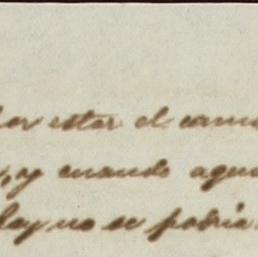 por estar el cami
y cuando agu
hay no se podria